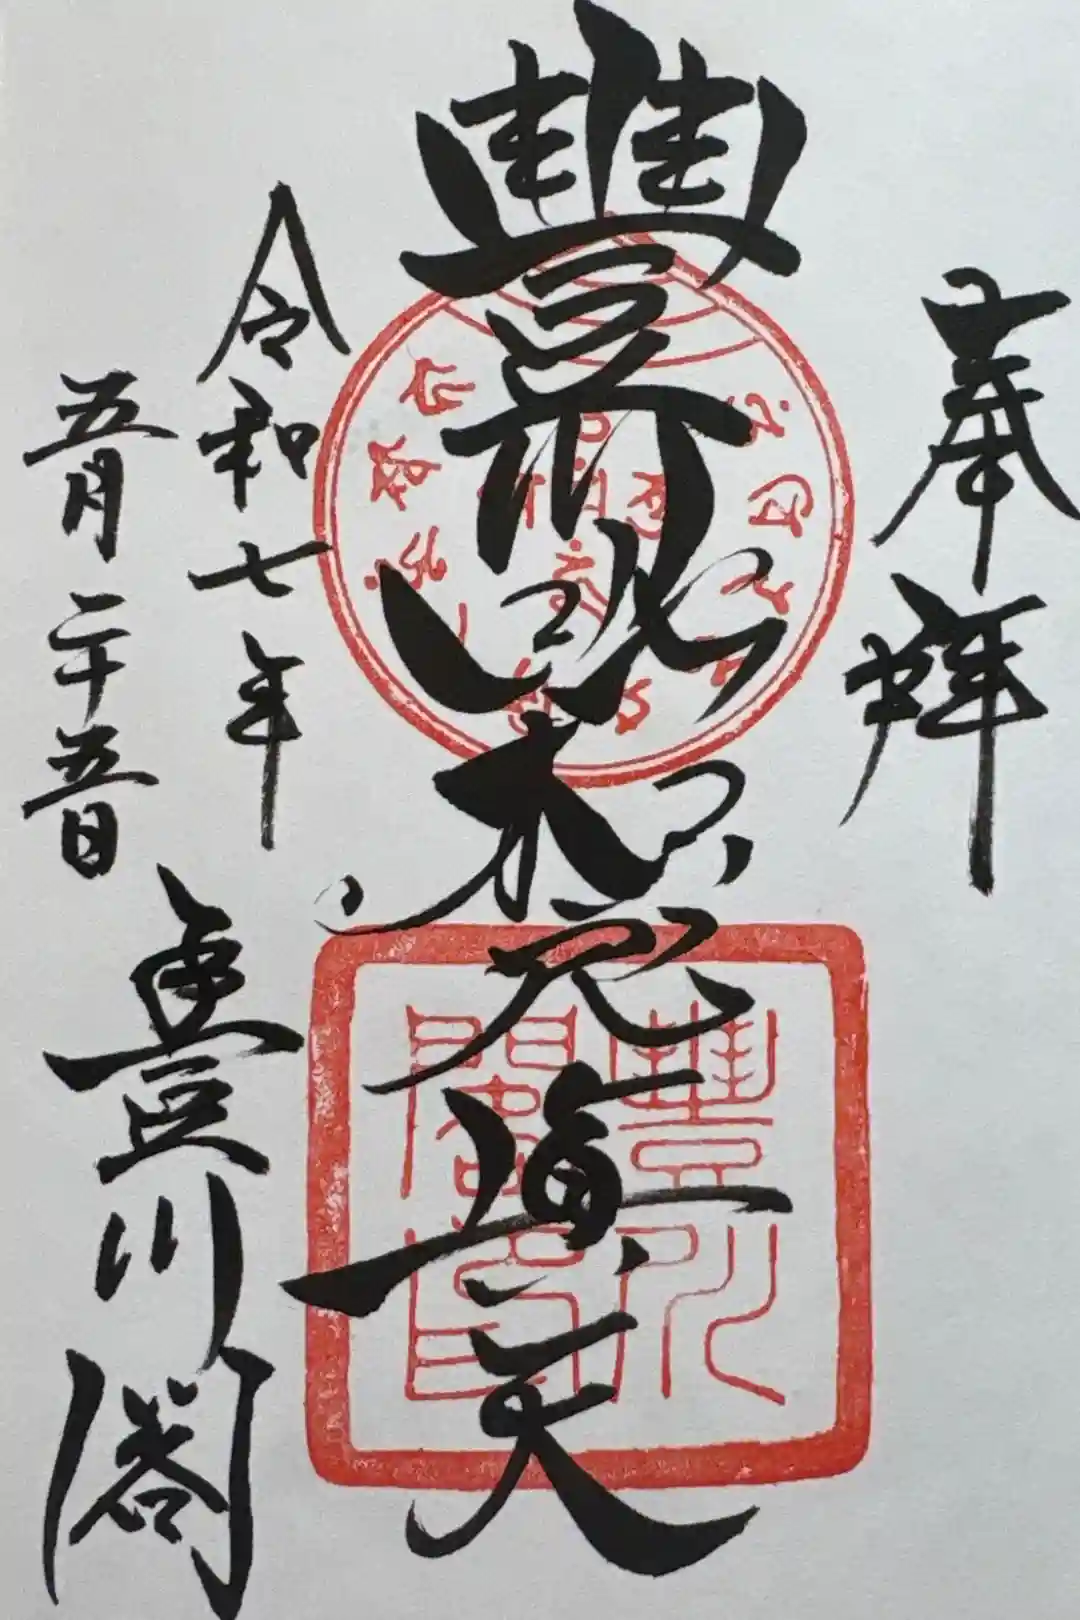 奉拝
豐川吒枳尼真天
豐川
閣印
令和七年
五月二十五日
豊川閣